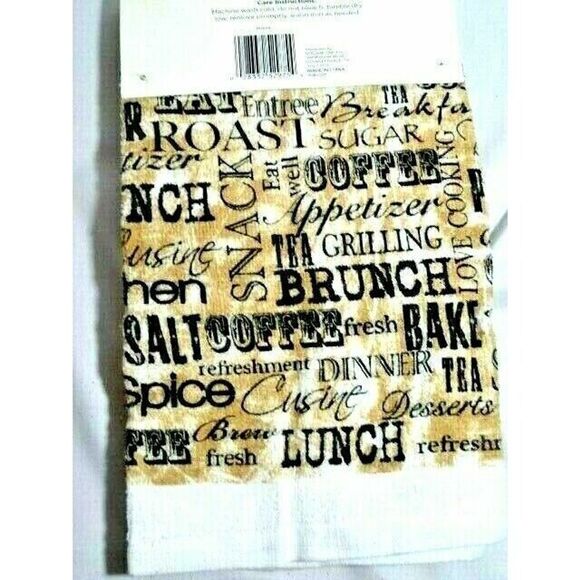 Care Instructions:
Machine wash cold, do not bleach, tumble dry
low, remove promptly, warm iron as needed.
EAT Entree Breakfa TEA
ROAST SUGAR
etizer
SNACK
Eat
well
COFFEE
NCH
Appetizer
LOVE COOKING
Cusine
TEA GRILLING
hen
BRUNCH
SALT COFFEE fresh BAKE
refreshment DINNER
TEA S
Spice Cusine Desserts
FEE Brew LUNCH refreshm
fresh